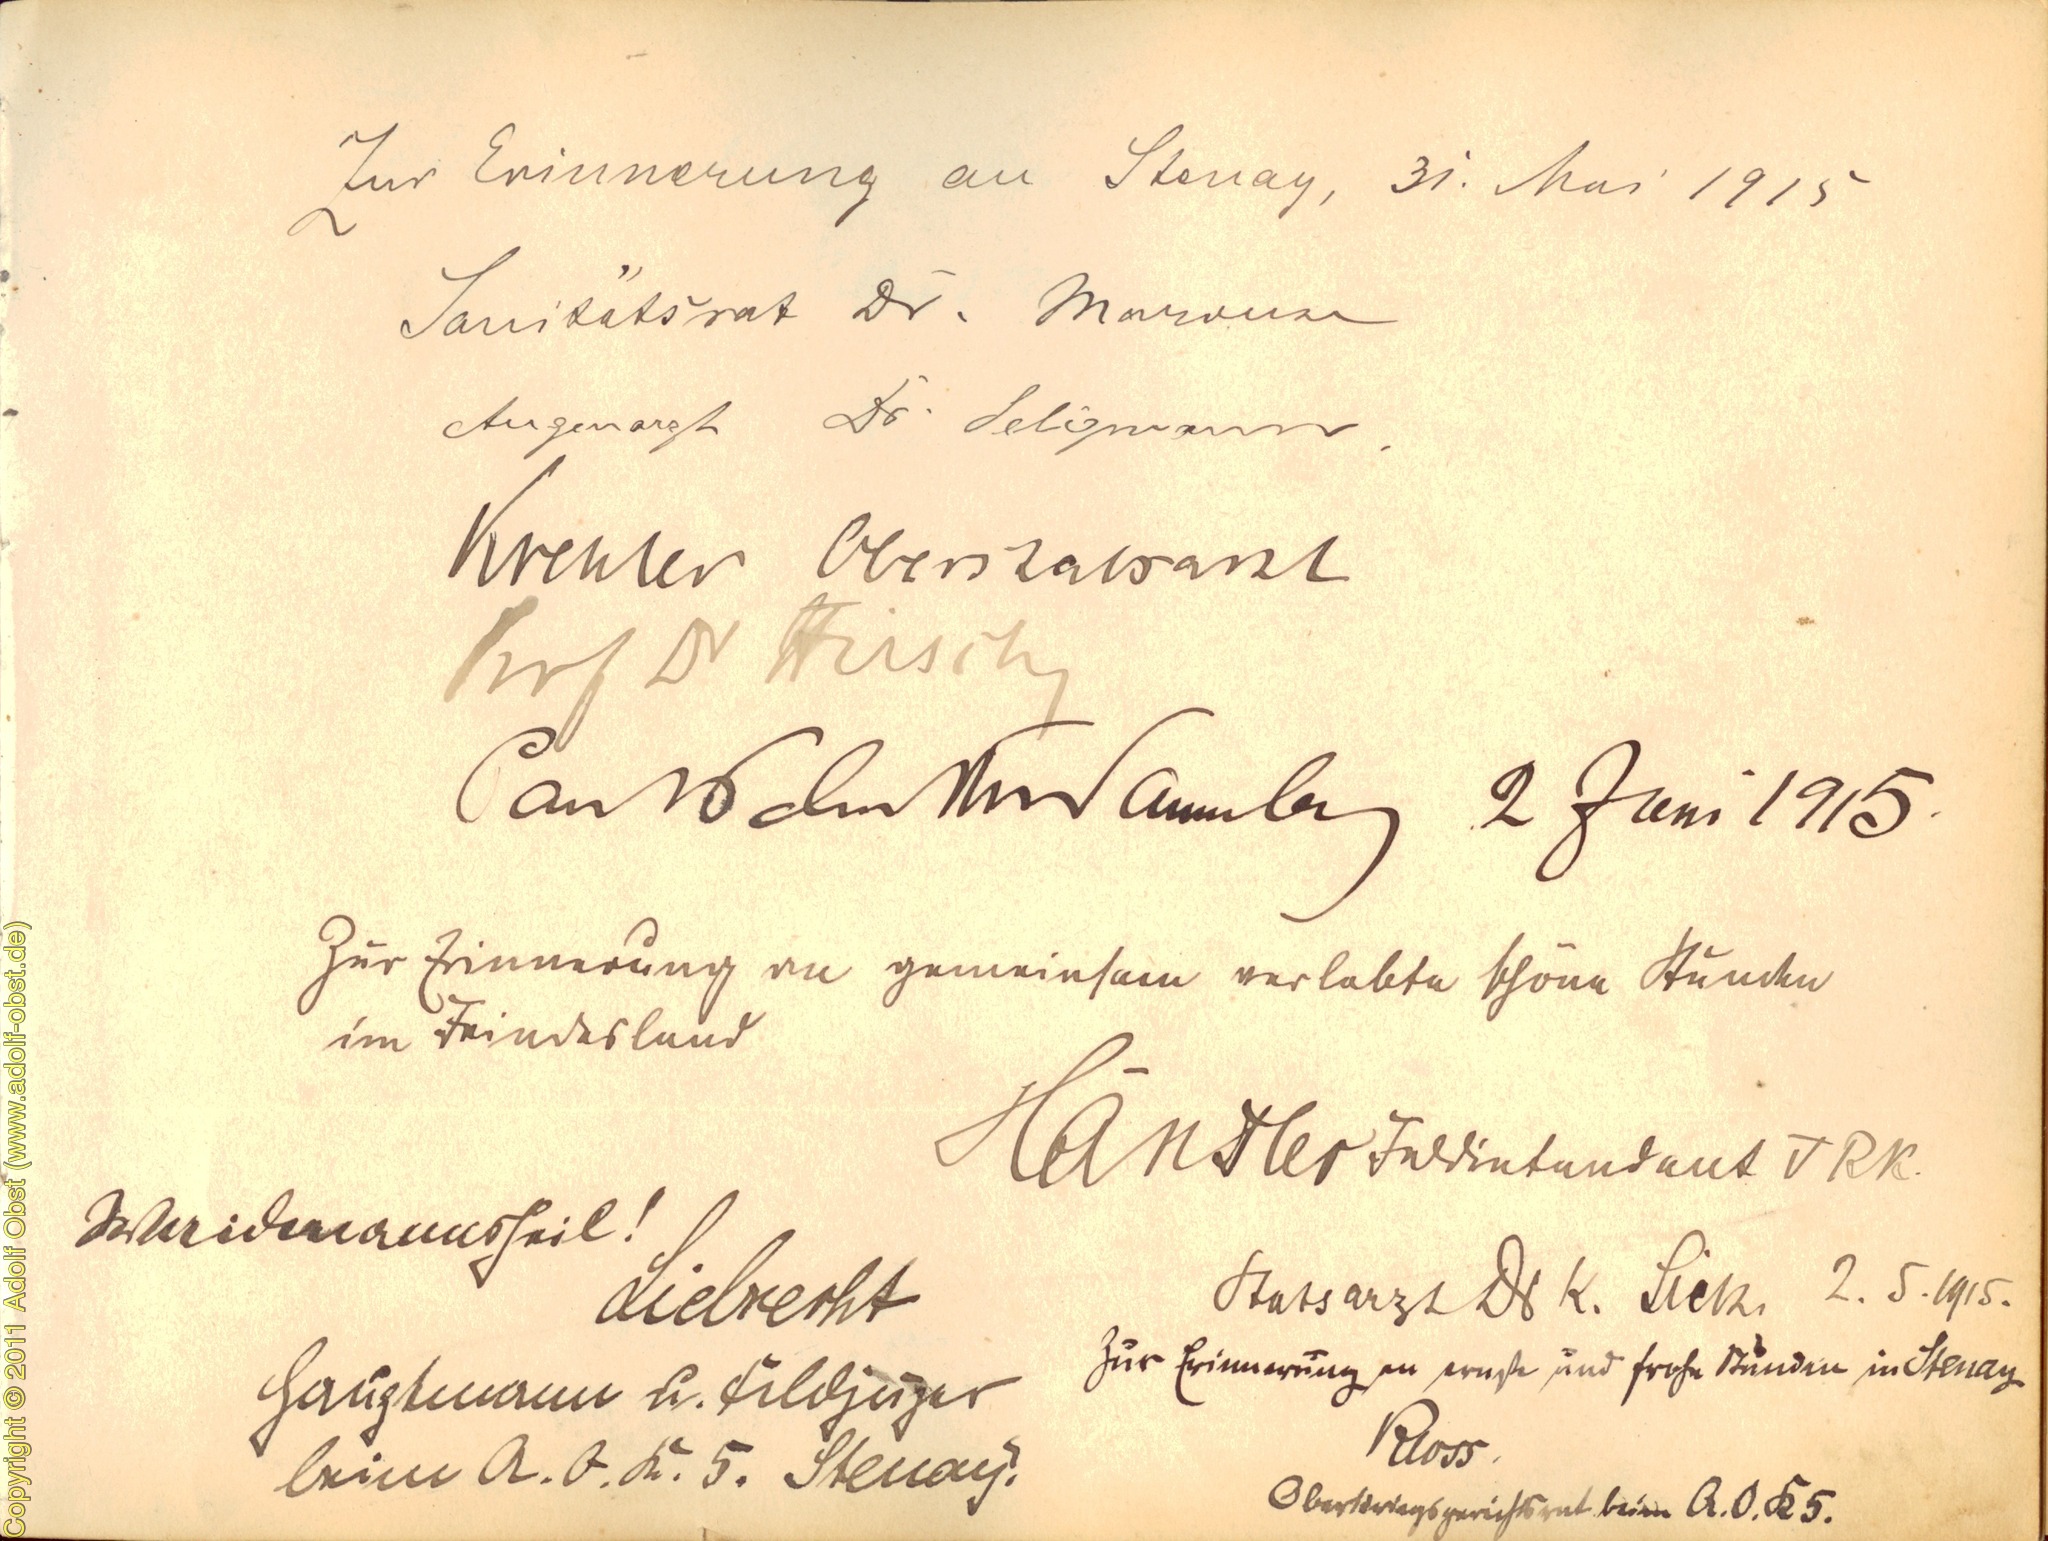 Zur Erinnerung an Stenay, 31. Mai 1915
Sanitätsrat Dr. Marcuse
Augenarzt Dr. Seligmann.
Oberstabsarzt
Prof Dr Hirsch
2 Juni 1915.
Zur Erinnerung an gemeinsam verlebte schöne Stunden
im Feindesland
Händler Feldintendant
Weidmannsheil!
Liebrecht
Hauptmann u. Feldjäger
beim A. O. K. 5. Stenay.
Stabsarzt Dr K. Sick. 2. 5. 1915.
Zur Erinnerung an ernste und frohe Stunden in Stenay
Kloss.
Oberkriegsgerichtsrat beim A. O. K 5.
Copyright © 2011 Adolf Obst (www.adolf-obst.de)